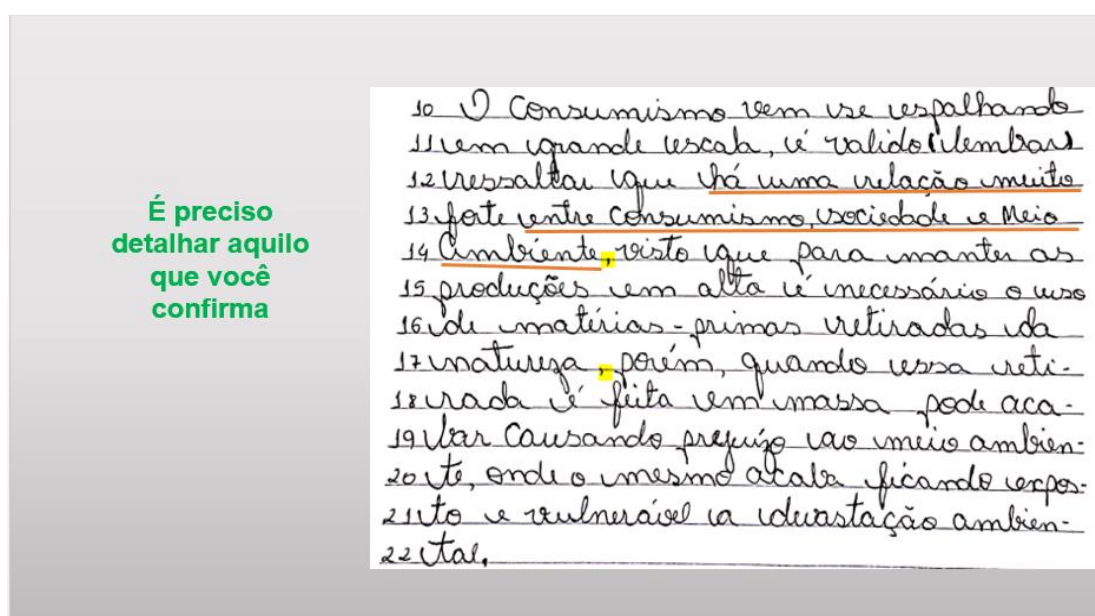 É preciso
detalhar aquilo
que você
confirma
10 O Consumismo vem se espalhando
11 em grande escala, é valido (lembrar)
12 ressaltar que há uma relação muito
13 forte entre consumismo, sociedade e Meio
14 Ambiente, visto que para manter as
15 produções em alta é necessário o uso
16 de matérias-primas retiradas da
17 natureza, porém, quando essa reti-
18 rada é feita em massa pode aca-
19 bar causando prejuízo ao meio ambien-
20 te, onde o mesmo acaba ficando expos-
21 to e vulnerável a devastação ambien-
22 tal.